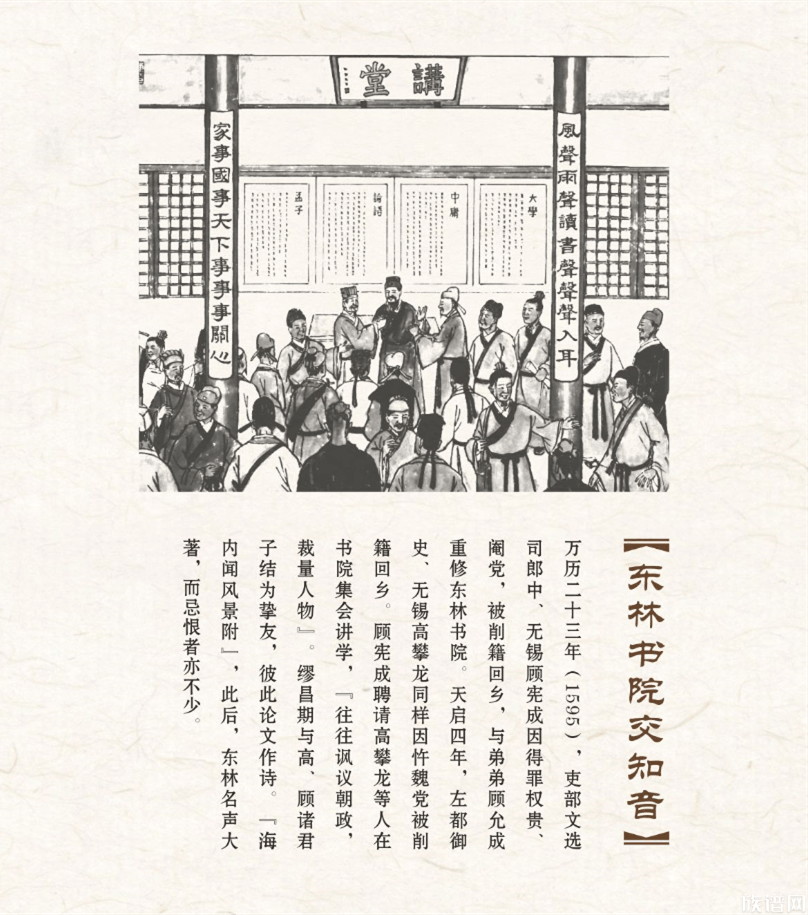 講堂
風聲雨聲讀書聲聲聲入耳
家事國事天下事事事關心
大學
中庸
論語
孟子
【东林书院交知音】
万历二十三年（1595），吏部文选
司郎中、无锡顾宪成因得罪权贵、
阉党，被削籍回乡，与弟弟顾允成
重修东林书院。天启四年，左都御
史、无锡高攀龙同样因忤魏党被削
籍回乡。顾宪成聘请高攀龙等人在
书院集会讲学，『往往讽议朝政，
裁量人物』。缪昌期与高、顾诸君
子结为挚友，彼此论文作诗。『海
内闻风景附』，此后，东林名声大
著，而忌恨者亦不少。
族谱网